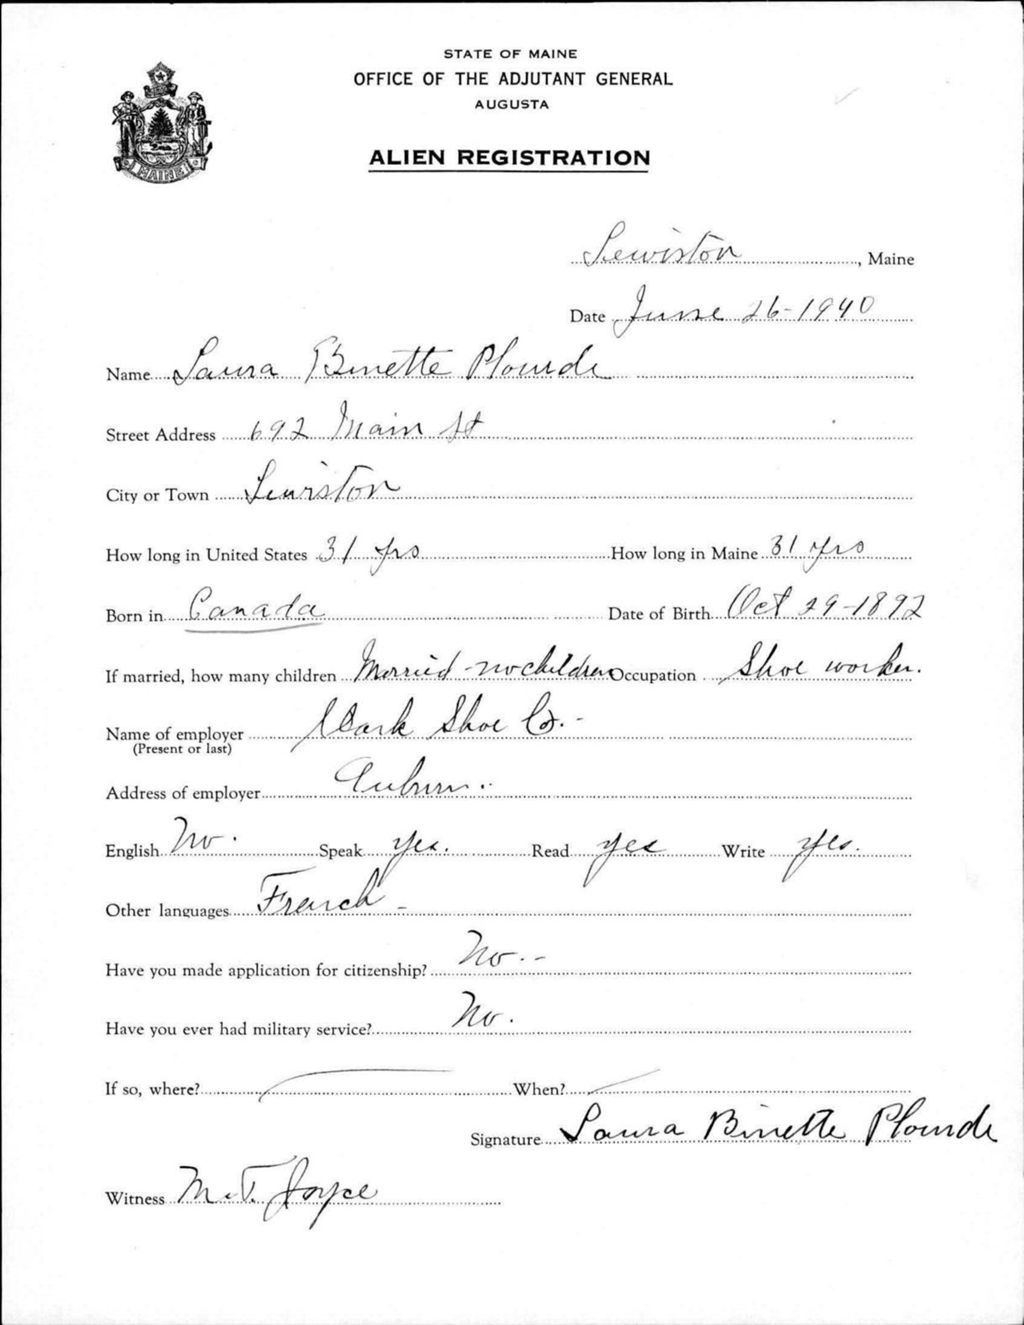 STATE OF MAINE
OFFICE OF THE ADJUTANT GENERAL
AUGUSTA
ALIEN REGISTRATION
MAINE
Lewiston, Maine
Date June 26-1940
Name Laura Binette Plourde
Street Address 692 Main St
City or Town Lewiston
How long in United States 31 yrs How long in Maine 31 yrs
Born in Canada Date of Birth Oct 29-1892
If married, how many children Married-no children Occupation Shoe worker.
Name of employer Clark Shoe Co.-
(Present or last)
Address of employer Auburn.
English No. Speak yes. Read yes Write yes.
Other languages French-
Have you made application for citizenship? No.-
Have you ever had military service? No.
If so, where? When?
Signature Laura Binette Plourde
Witness M.T. Joyce